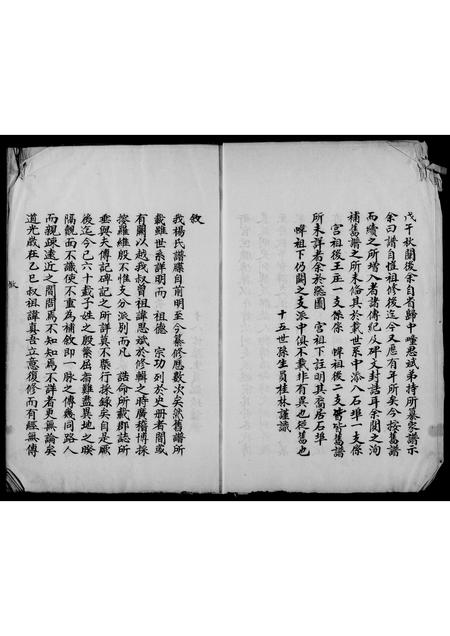 戊午秋闈後余自省歸中途思斌弟持所纂家譜示
余曰譜自愷祖修後迄今又應有年所矣今按舊譜
而續之所增入者諸傳紀及碑文封誥耳余閱之洵
補舊譜之所未備其於載世系中添入石埠一支係
宮祖後王巫一支係 曍祖後二支皆舊譜
所未詳者余於總圖 宮祖下註明其喬居石埠
曍祖下仍闕之支派中俱不載非有異也從舊也
十五世孫生員桂林謹識
敘
我楊氏譜牒自前明至今纂修應數次矣然舊譜所
載雖世系詳明而 祖德 宗功列於史冊者間或
有闕以越我叔曾祖諱思斌於修輯之時廣稽博採
按羅維殷不惟支分派別而凡 誥命所載郡誌所
垂與夫傳記碑記之所詳莫不槩行採錄矣自是厥
後迄今已六十載子姓之殷繁屈奇難盡異地之睽
隔覿面不識使不重為補敘即一脉之傳幾同路人
而親疎遠近之間問焉不知知焉不詳者更無論矣
道光歲在乙巳叔祖諱真吾立意復修而有經無傳
敘